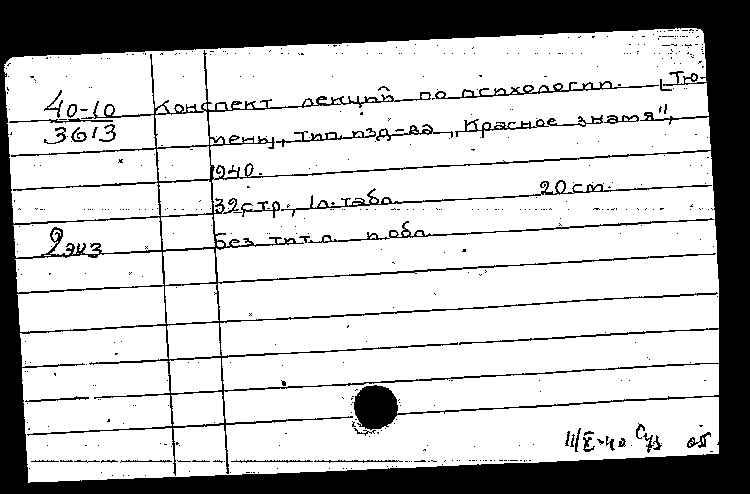 40-10 Конспект лекций по психологии. [Тю-
3613 мень, Тип. изд-ва „Красное знамя",
1940.
32 стр., 1 л. табл. 20 см.
2 экз Без тит. л. и обл.